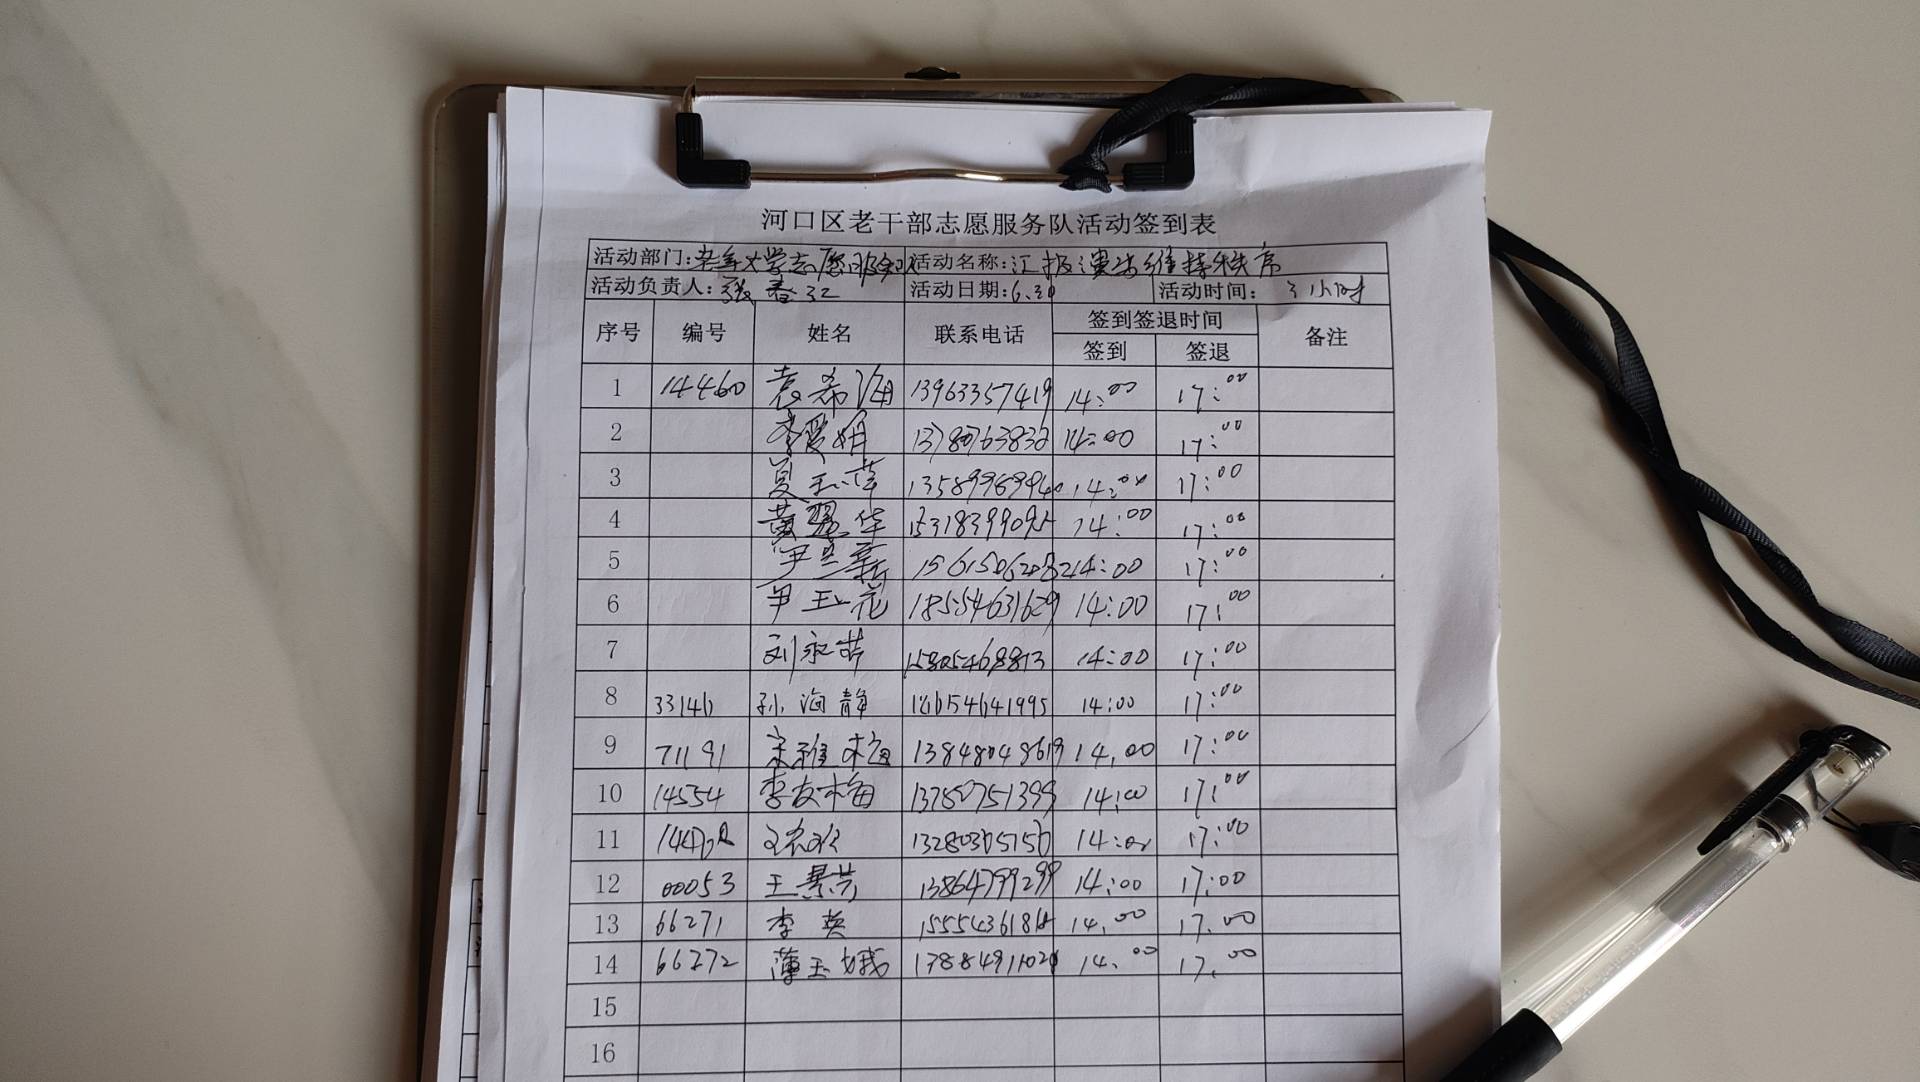 河口区老干部志愿服务队活动签到表
活动部门:老年大学志愿服务队 活动名称:汇报演出维持秩序
活动负责人:张春江 活动日期:6.30 活动时间:3小时
序号 编号 姓名 联系电话 签到签退时间 备注
签到 签退
1 14460 袁希海 13963357419 14:00 17:00
2 李爱娟 14:00 17:00
3 夏玉萍 14:00 17:00
4 黄翠华 15318399095 14:00 17:00
5 尹兰新 15615062082 14:00 17:00
6 尹玉花 18554631629 14:00 17:00
7 刘永芳 15805468813 14:00 17:00
8 33146 孙海静 14:00 17:00
9 71191 宋雅梅 13848048619 14.00 17:00
10 14554 李友梅 13780751399 14:00 17:00
11 14:00 17:00
12 00053 王景芳 13864799299 14:00 17:00
13 66271 李英 14.00 17.00
14 66272 薄玉娥 14.00 17.00
15
16